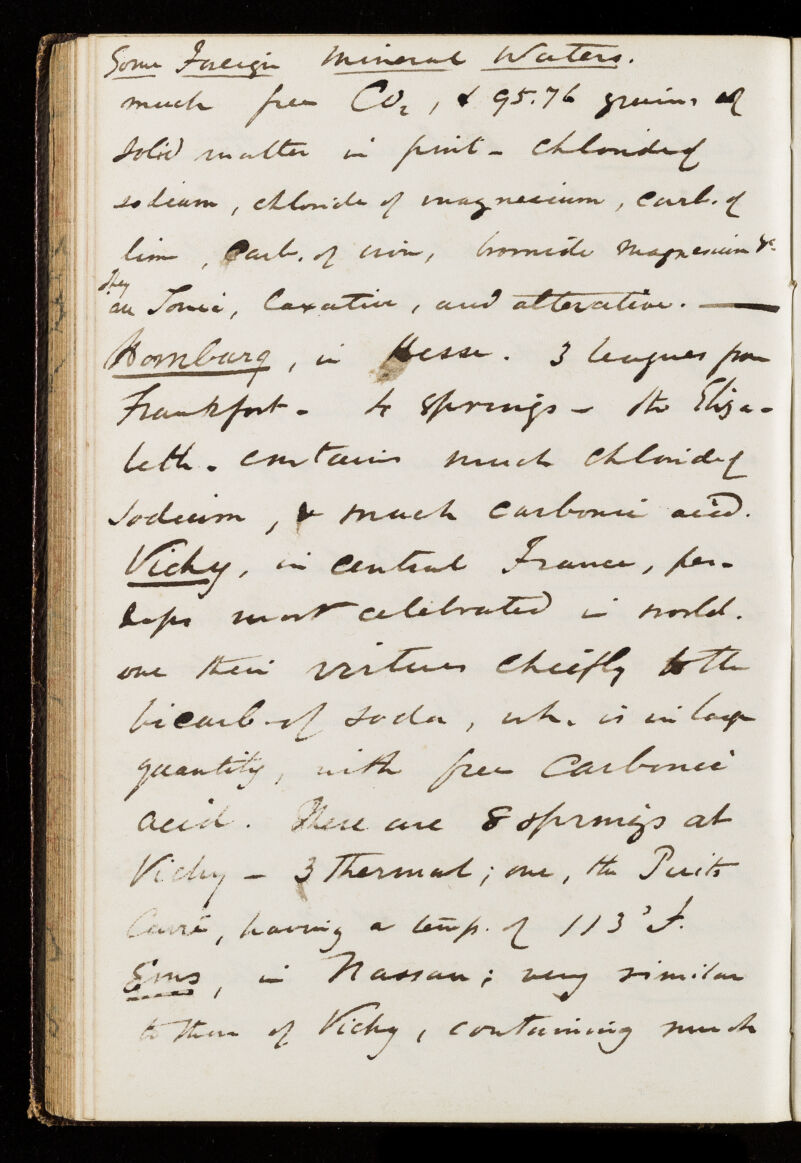 Some Foreign Mineral Waters.
much free CO2, & 95.76 grains of
solid matter in pint - chloride of
sodium, chloride of magnesium, carb. of
lime, carb. of iron, bromide magnesium &c.
They
are Tonic, laxative, and alterative. —
Homburg, in Hesse. 3 leagues from
Frankfort - 4 springs - the Eliza-
beth - contains much chloride of
sodium, & much carbonic acid.
Vichy, in central France, per-
haps most celebrated in world.
owe their virtues chiefly to the
bicarb. of soda, wh. is in large
quantity, with free carbonic
acid. There are 8 springs at
Vichy - 3 thermal; one, the Puits
Carré, having a temp. of 113° F.
Ems, in Nassau; very similar
to those of Vichy, containing much